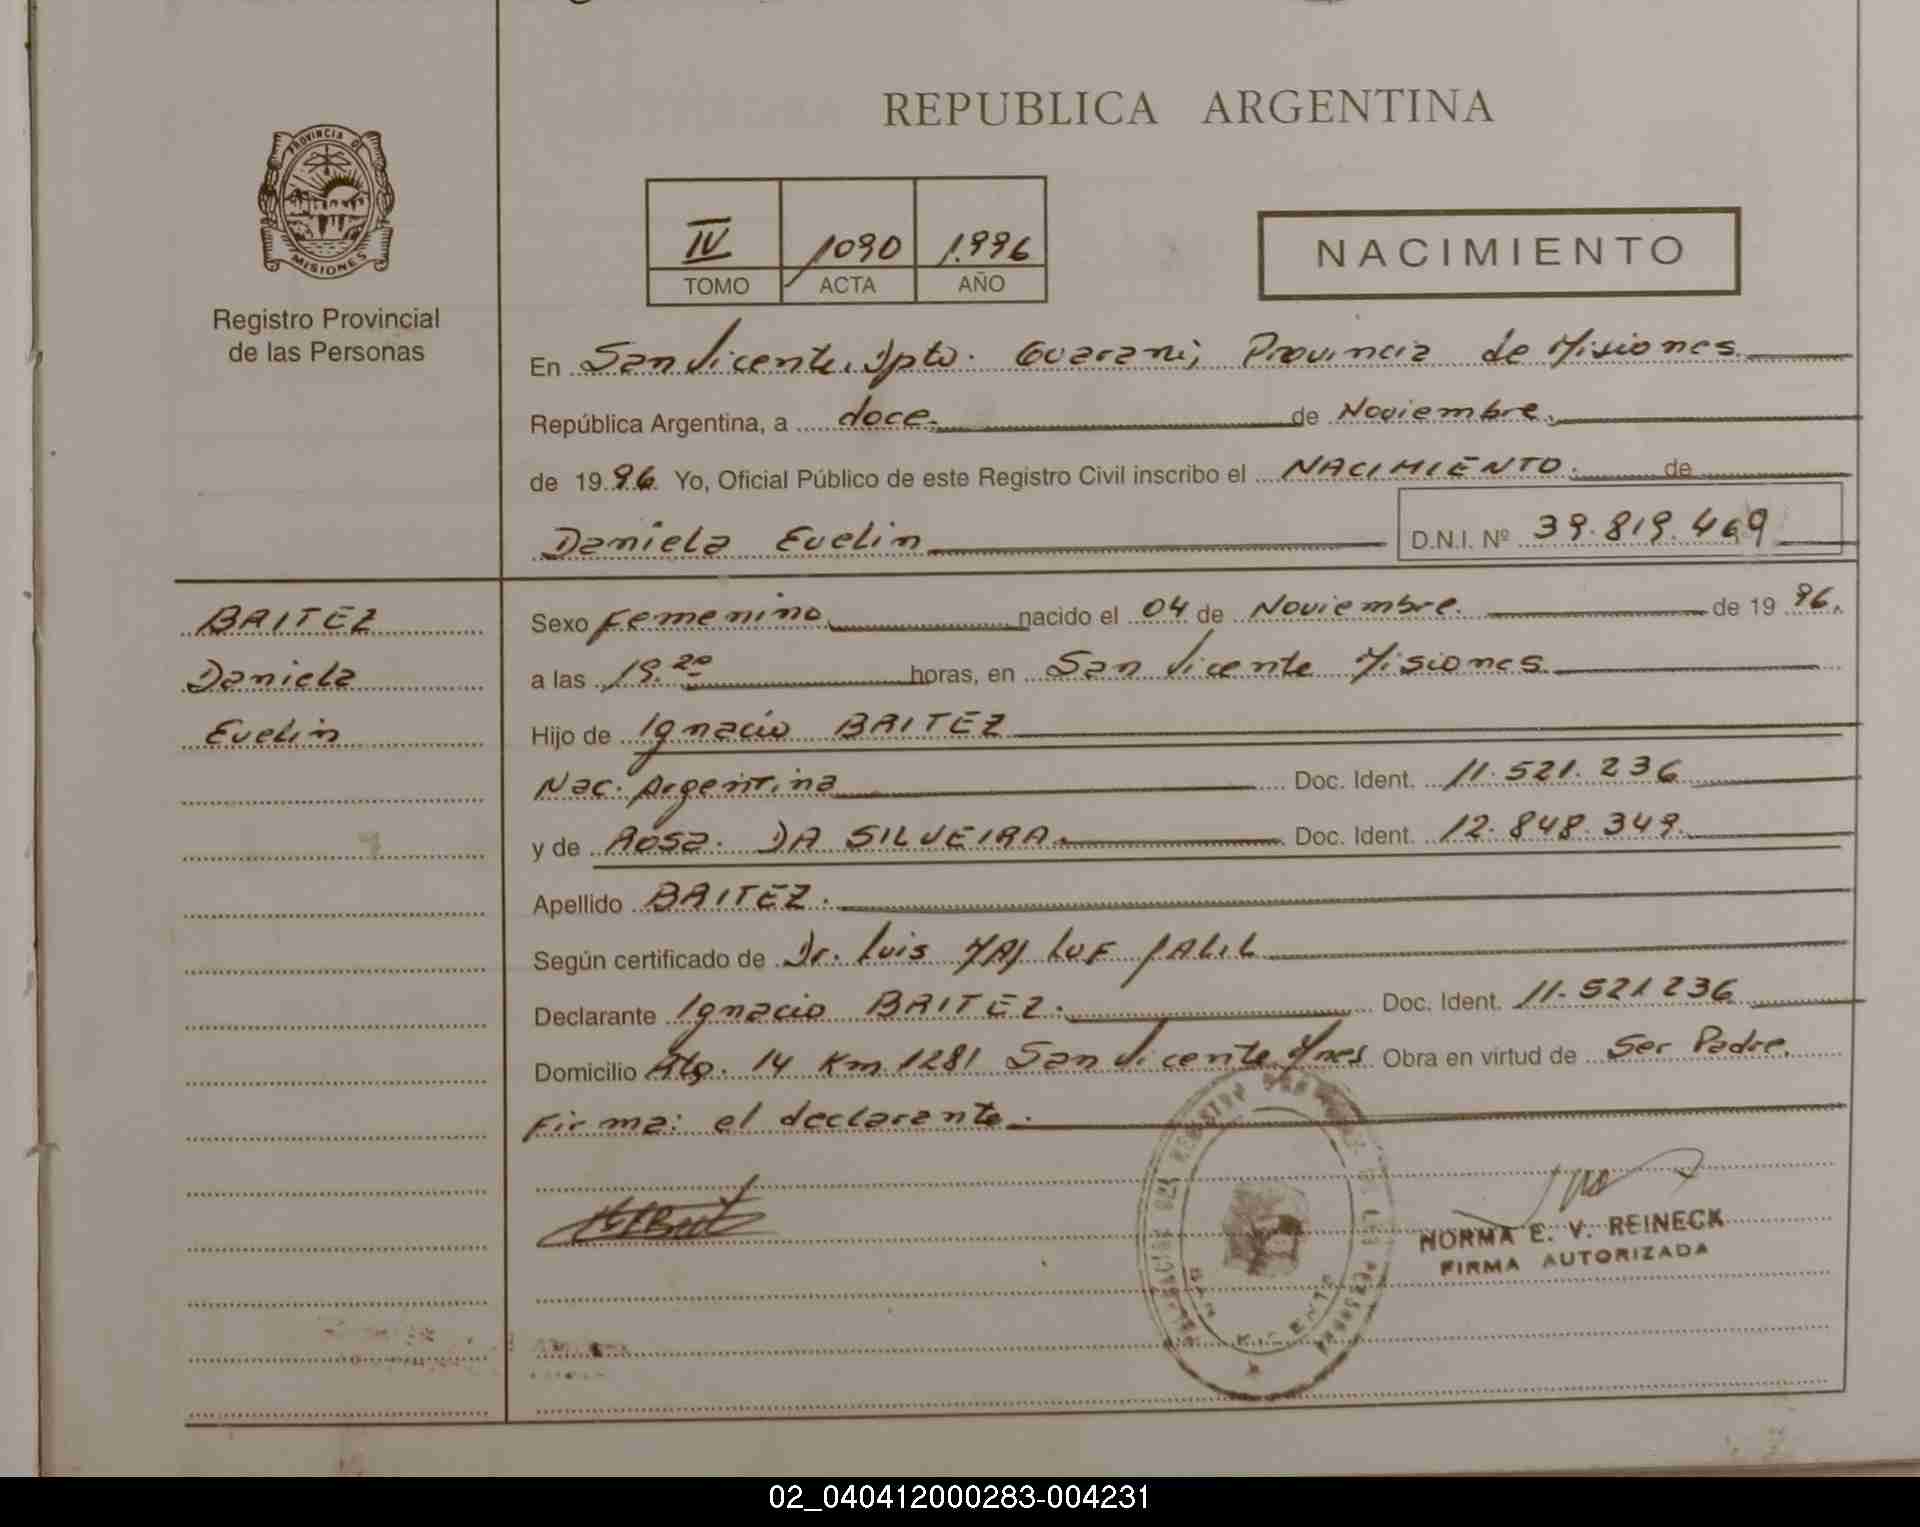 REPUBLICA ARGENTINA
PROVINCIA DE
MISIONES
Registro Provincial
de las Personas
IV 1090 1.996
TOMO ACTA AÑO
NACIMIENTO
En San Vicente, Dpto. Guarani, Provincia de Misiones
República Argentina, a doce. de Noviembre.
de 19 96. Yo, Oficial Público de este Registro Civil inscribo el NACIMIENTO. de
Daniela Evelin D.N.I. Nº 39.819.469
BAITEZ
Daniela
Evelin
Sexo Femenino. nacido el 04 de Noviembre. de 19 96.
a las 19.20 horas, en San Vicente Misiones
Hijo de Ignacio BAITEZ
Nac. Argentina Doc. Ident. 11.521.236
y de Rosa. DA SILVEIRA. Doc. Ident. 12.848.349.
Apellido BAITEZ.
Según certificado de Dr. Luis JALIL
Declarante Ignacio BAITEZ. Doc. Ident. 11.521236
Domicilio 14 Km 1281 San Vicente Mnes Obra en virtud de Ser Padre.
Firma: el declarante.
NORMA E. V. REINECK
FIRMA AUTORIZADA
02_040412000283-004231